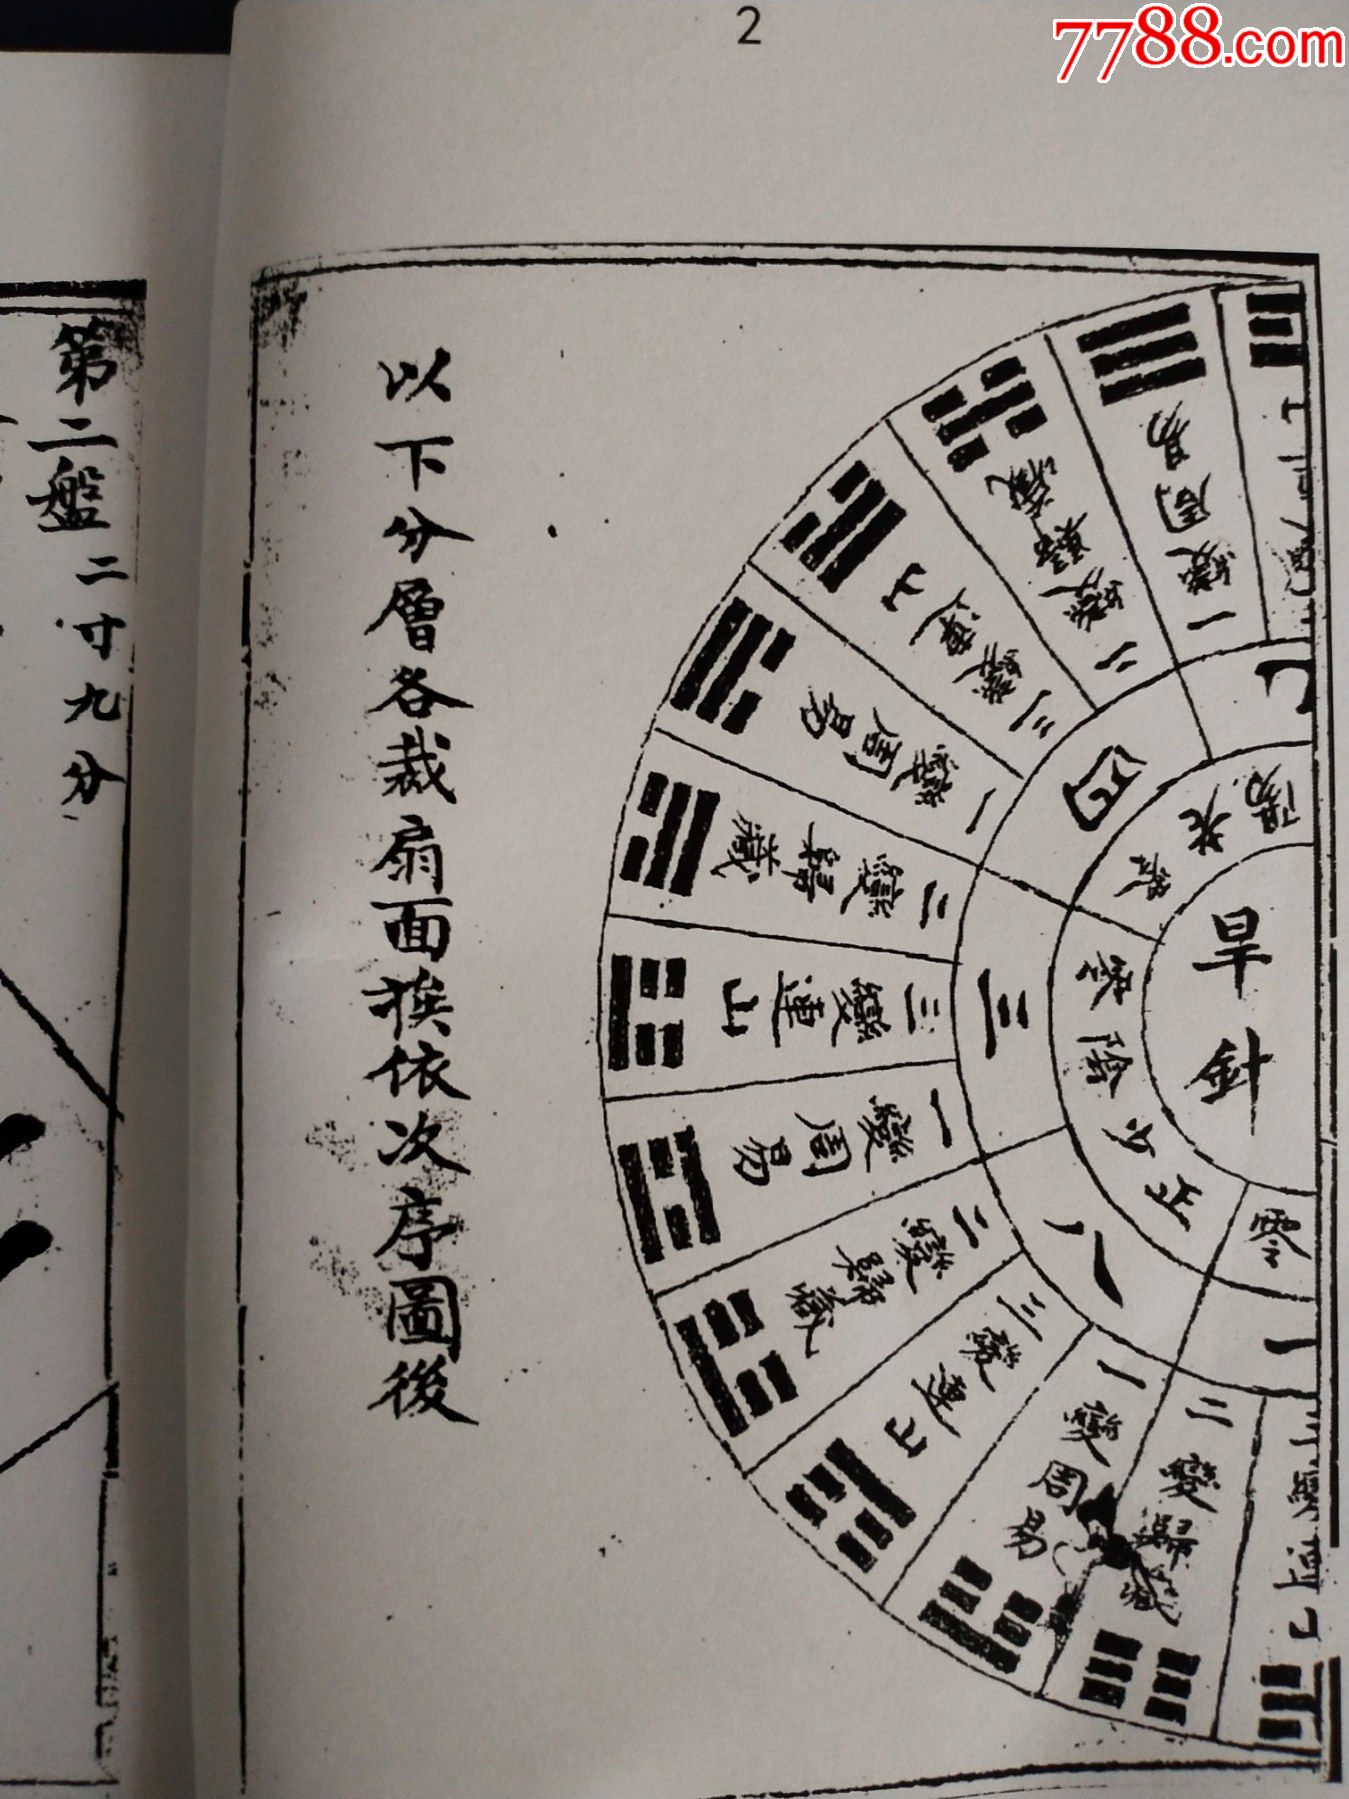 2
7788.com
以下分層各裁扇面挨依次序圖後
第二盤 二寸九分
旱針
陽老
零陰少正
七
四
三
八
一
一變周易
二變歸藏
三變連山
一變周易
二變歸藏
三變連山
一變周易
二變歸藏
三變連山
一變周易
二變歸藏
零